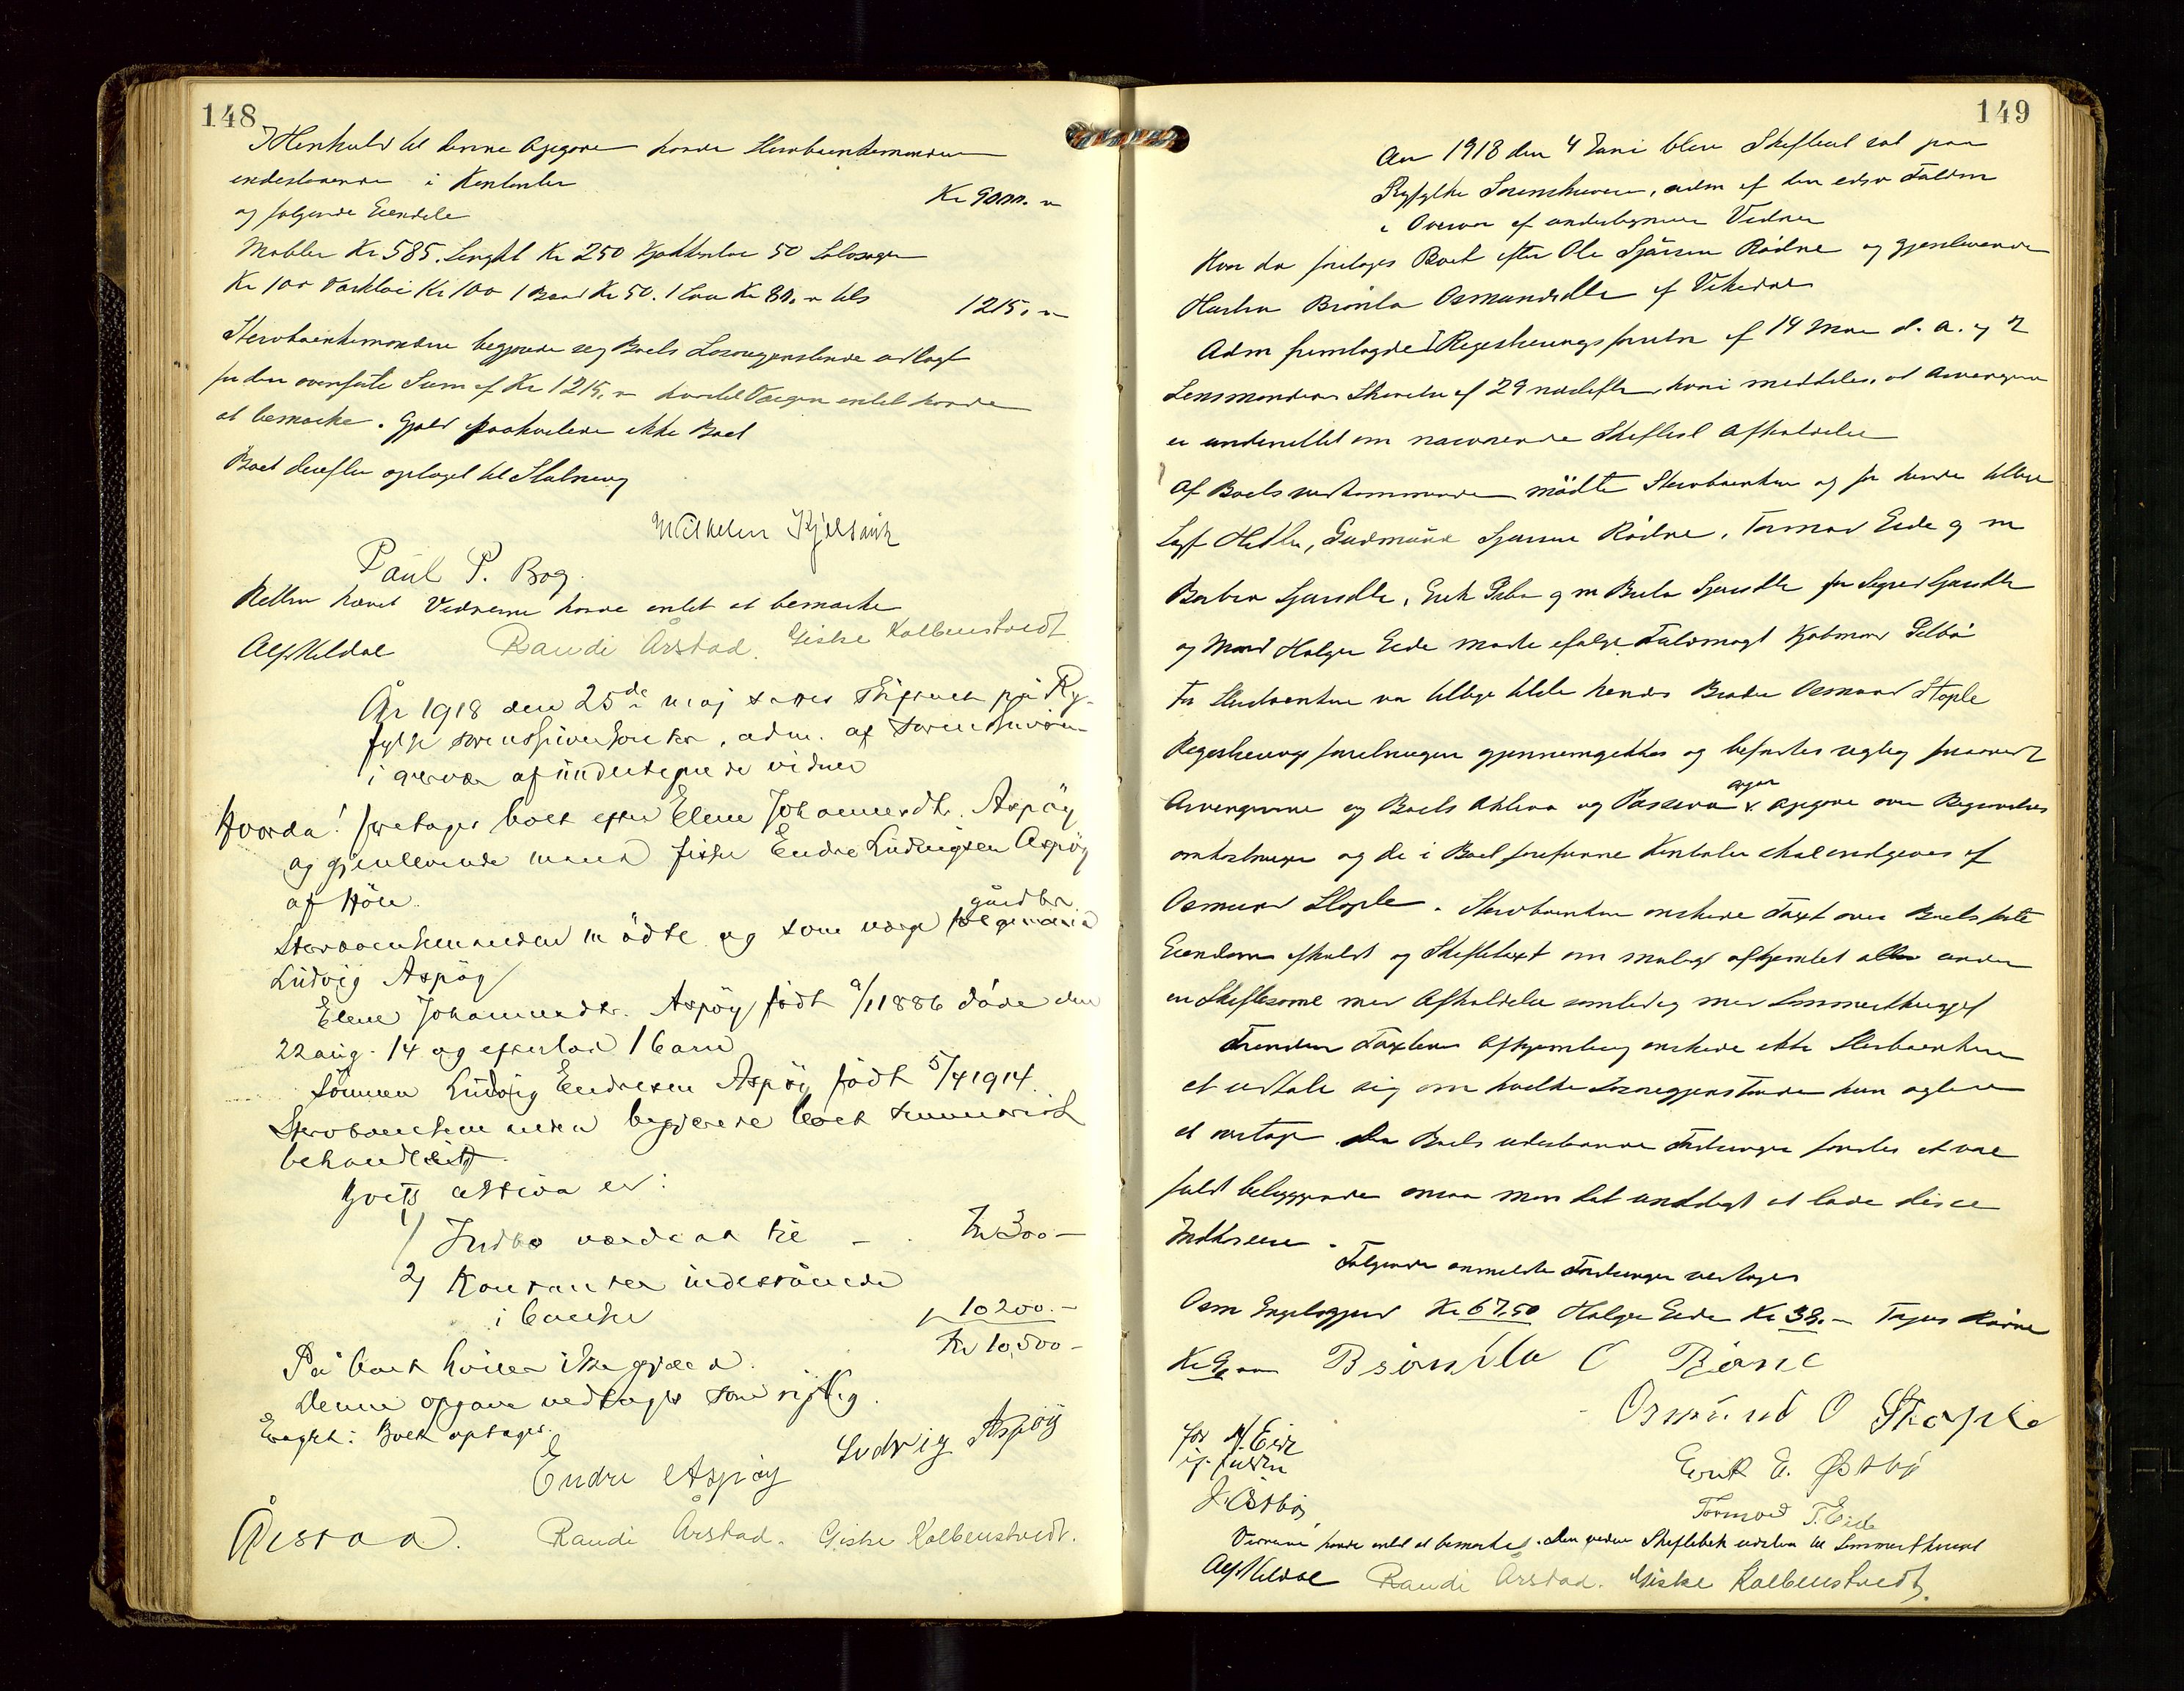 148
I Henhold til denne Opgave havde Stervboenkemanden
indestaaende i Kontanter Kr 9000.
og følgende Eiendele
Møbler Kr 585. Sengkl Kr 250 Kjøkkentøi 50 Sølvsager
Kr 100 Dæktøi Kr 100 1 Baad Kr 50. 1 Kr 80. tils 1215.
Stervboenkemanden begjærede sig Boets Løsøregjenstande udlagt
for den overførte Sum af Kr 1215, hvortil Værgen intet havde
at bemærke. Gjæld paahviler ikke Boet
Boet derefter optaget til Slutning
Wilhelm
Paul P. Bog.
Retten hævet Vidnerne havde intet at bemærke
Alf Kildal Randi Årstad. Giske Kolbenstvedt
År 1918 den 25de maj sattes skifteret på Ry-
fylke sorenskriverkontor, adm. af sorenskriveren
i overvær af undertegnede vidner
Hvorda! foretoges boet efter Elene Johannesdtr. Aspøy
og gjenlevende mand fisker Endre Ludvigsen Aspøy
af Höle.
gårdbr.
Stervboenkemanden mödte og som værge
Ludvig Aspøy
Elene Johannesdtr. Aspøy født 9/1 1886 døde den
22 aug. 14 og efterlod 1 barn
Sønnen Ludvig Endresen Aspøy født 5/4 1914.
Stervboenkemanden begjærede boet summarisk
behandlet.
Boets aktiva er:
1/ Indbo værd til - Kr 300 -
2/ Kontanter indestående
i banken 10200. -
Kr 10,500 -
På boet hviler ikke gjæld.
Denne opgave vedtoges som rigtig.
Eragtet: Boet optages.
Endre Aspøy Ludvig Aspøy
Årstad. Randi Årstad. Giske Kolbenstvedt.
149
Aar 1918 den 4 Juni blev Skifteret sat paa
Ryfylke Sorenskriveri, adm af den edsv Fuldm
i Overvær af undertegnede Vidner
Hvor da foretoges Boet efter Ole Sjursen Rødne og gjenlevende
Hustru Brønla Osmundsdtr af Vikedal
Adm fremlagde Registreringsforretn af 14 Mai d. a. og
Lensmandens Skrivelse af 29 næstefter hvori meddeles, at Arvingerne
er underrettet om nærværende Skifterets Afholdelse
Af Boets vedkommende mødte Stervboenken og for hende tillige
Sagf Hetle, Gudmund Sjursen Rødne, Tormod Eide g m
Berta Sjursdtr, Erik Østbø g m Sjursdtr for Sigrid Sjursdtr
og Mand Holger Eide mødte ifølge Fuldmagt Kjøbmand Østbø
For Stervboenken var tillige tilstede hendes Broder Osmund Stople
Registreringsforretningen gjennemgikkes og befandtes rigtig
Arvingerne og Boets Aktiva og Passiva og Opgave over Begravelses
omkostninger og de i Boet forefundne Kontanter skal indgives af
Osmund Stople. Stervboenken ønskede Taxt over Boets faste
Eiendom afholdt og Skiftetaxt om muligt afhjemlet allerede inden
en Skiftesamling med Afholdelse samtidig med Sommertinget
Forinden Taxtens Afhjemling ønskede ikke Stervboenken
at udtale sig om hvilke Løsøregjenstande hun agtede
at overtage. Da Boets udestaaende Fordringer fandtes at være
fuldt betryggende ansaa man det unødigt at lade disse
inkassere.
Følgende anmeldte Fordringer vedtoges
Osm Kr 67,50 Holger Eide Kr 38. - Rødne
Kr Brønla O Rødne
Osmund O Stople
for H. Eide
if. fuldm
J. Østbø
Erik E. Østbø
Tormod T. Eide
Vidnerne havde intet at bemærke. Skifteret udsættes til Sommertinget
Alf Kildal Randi Årstad. Giske Kolbenstvedt.